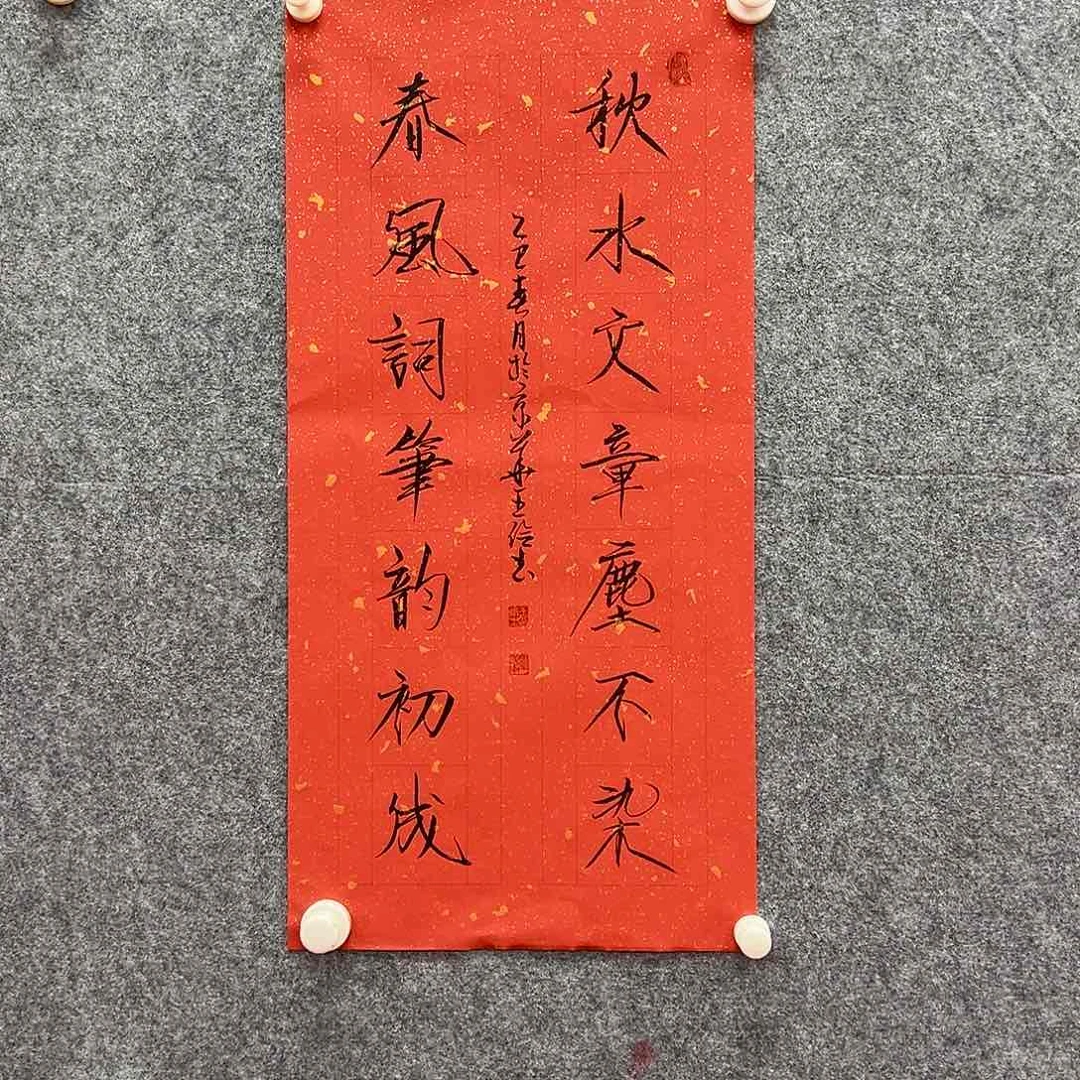 秋水文章塵不染
乙巳春月於京華王伶书
春風詞筆韵初成